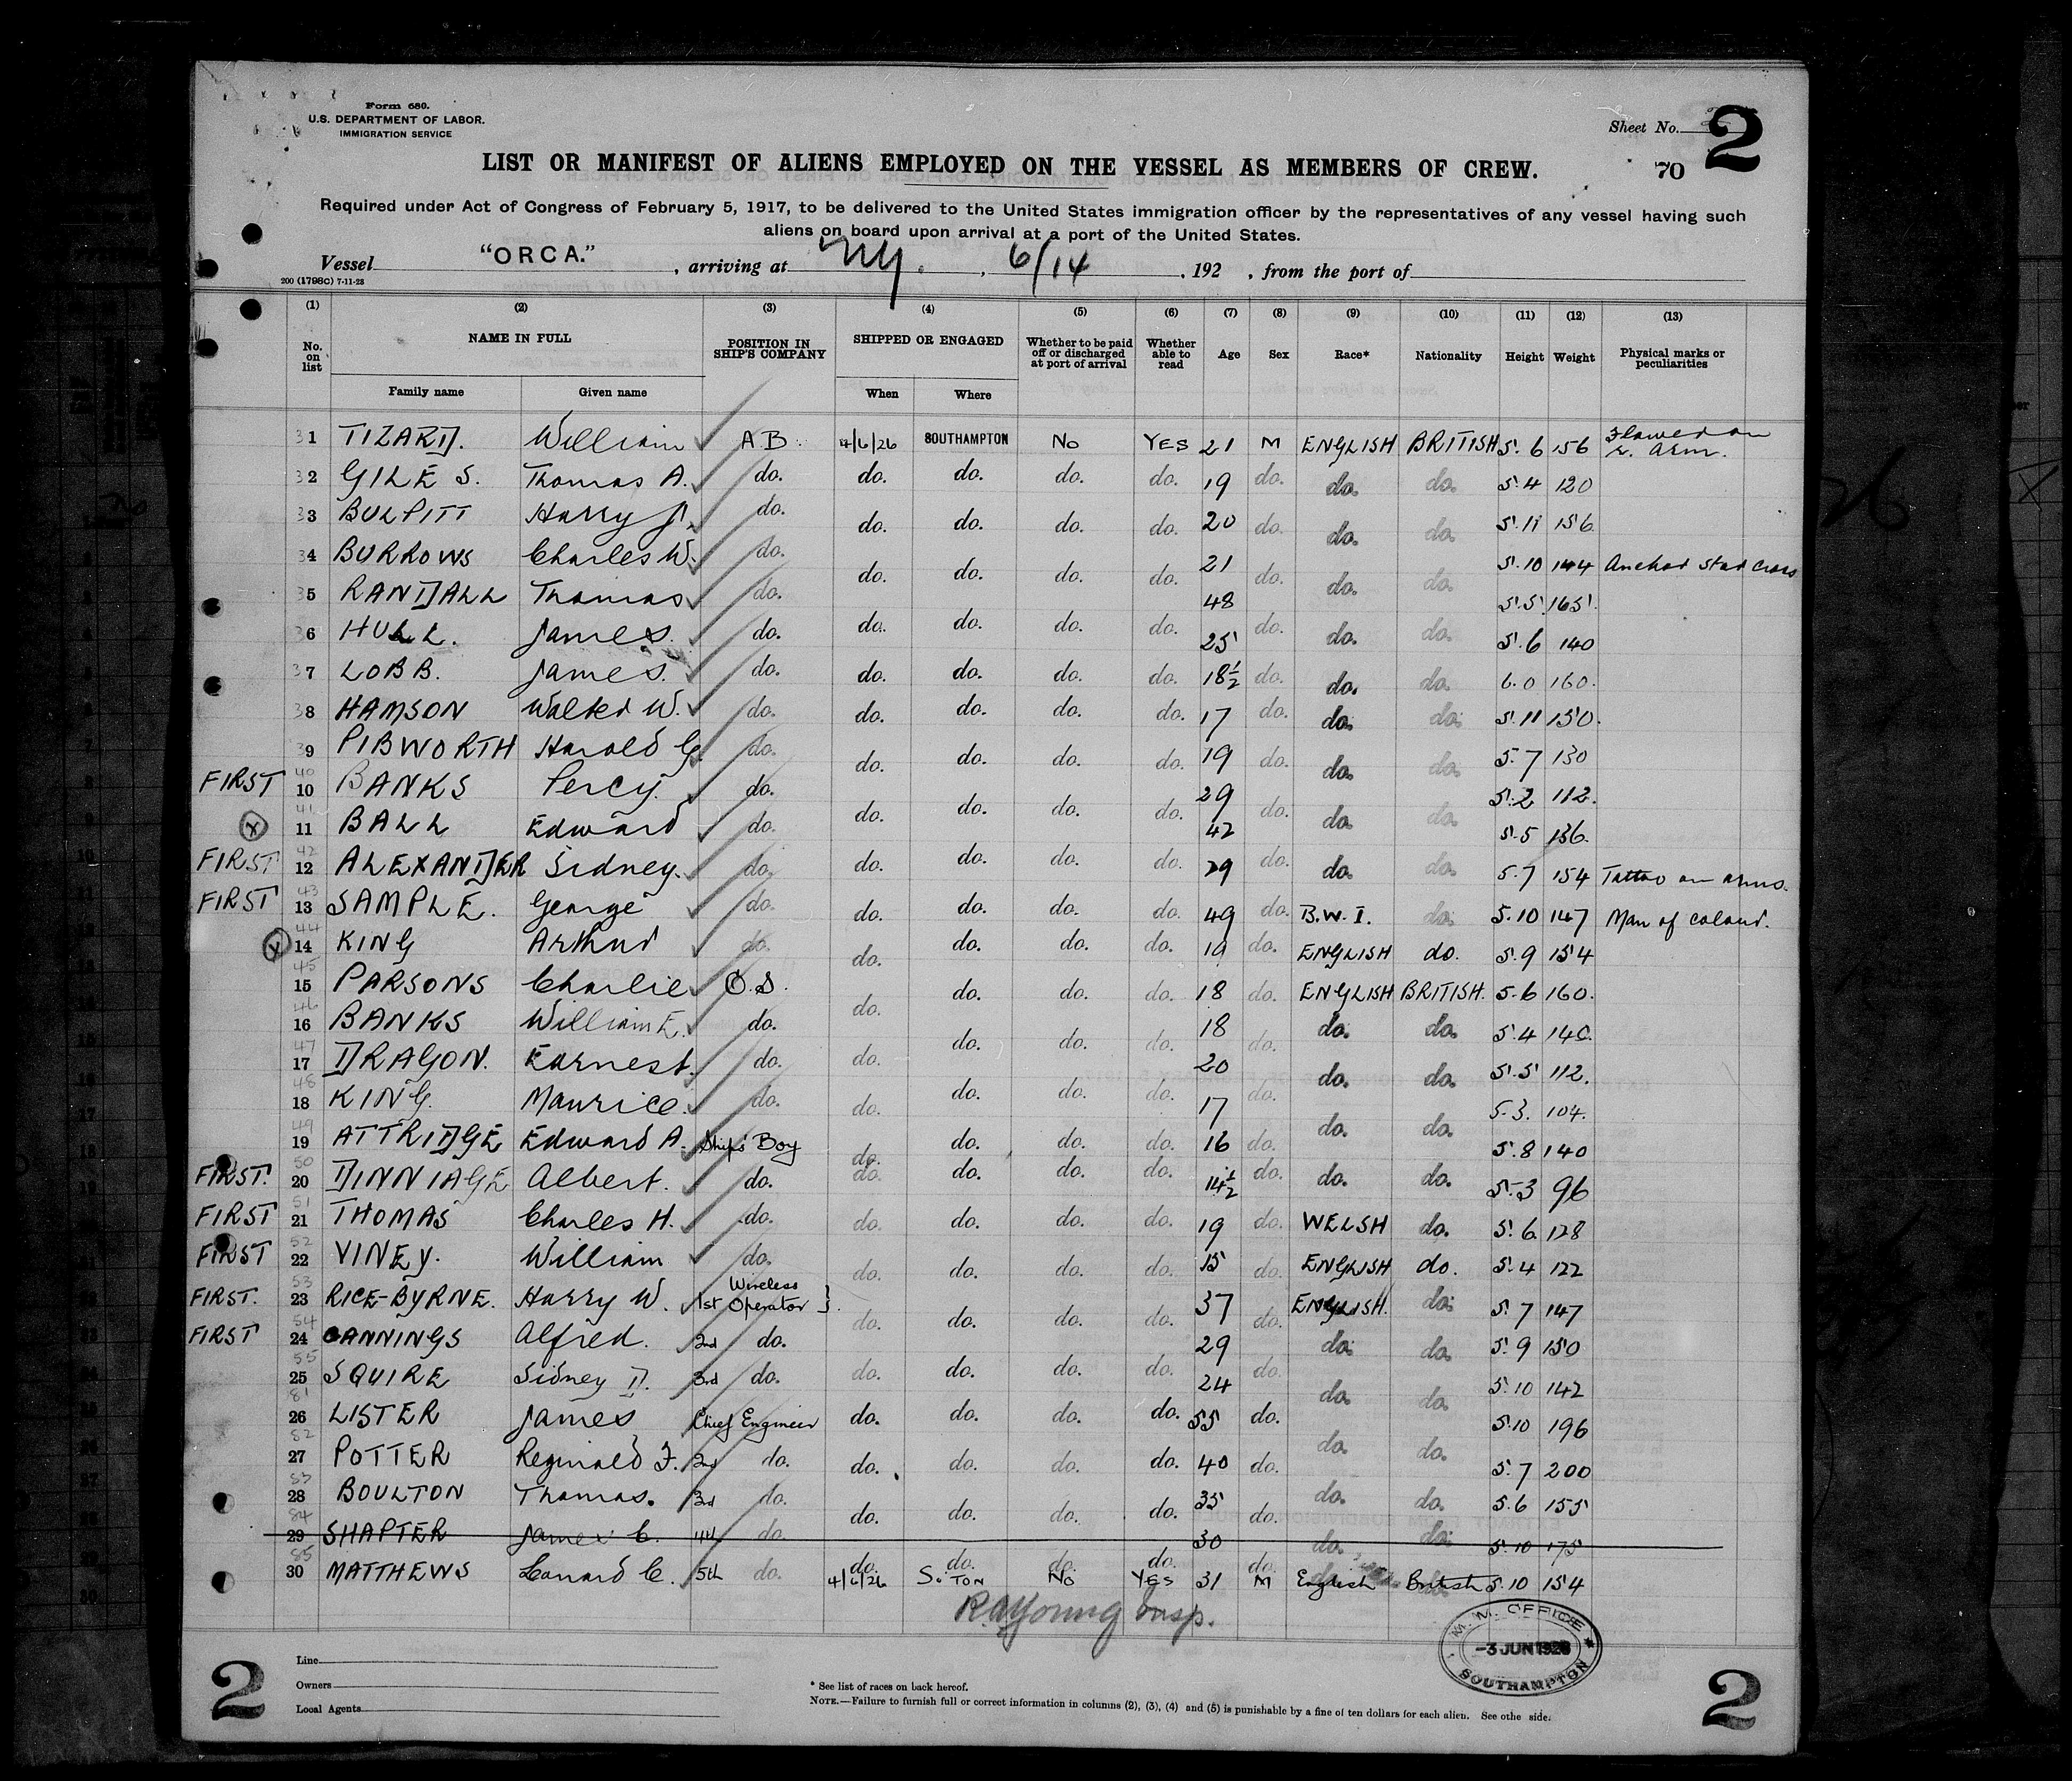 Form 680.
U.S. DEPARTMENT OF LABOR.
IMMIGRATION SERVICE
Sheet No. 2
70
LIST OR MANIFEST OF ALIENS EMPLOYED ON THE VESSEL AS MEMBERS OF CREW.
Required under Act of Congress of February 5, 1917, to be delivered to the United States immigration officer by the representatives of any vessel having such
aliens on board upon arrival at a port of the United States.
Vessel "ORCA.", arriving at NY., 6/14, 192 , from the port of
200 (1798C) 7-11-23
(1) (2) (3) (4) (5) (6) (7) (8) (9) (10) (11) (12) (13)
No. on list NAME IN FULL POSITION IN SHIP'S COMPANY SHIPPED OR ENGAGED Whether to be paid off or discharged at port of arrival Whether able to read Age Sex Race* Nationality Height Weight Physical marks or peculiarities
Family name Given name When Where
31 TIZARD. William AB. 4/6/26 SOUTHAMPTON NO YES 21 M ENGLISH BRITISH 5.6 156 r. arm.
32 GILES. Thomas A. do. do. do. do. do. 19 do. do. do. 5.4 120
33 BULPITT Harry J. do. do. do. do. do. 20 do. do. do. 5.11 156
34 BURROWS Charles W. do. do. do. do. do. 21 do. do. do. 5.10 144 Anchor Star Cross
35 RANDALL Thomas do. do. do. do. do. 48 do. do. do. 5.5 165.
36 HULL. James. do. do. do. do. do. 25 do. do. do. 5.6 140
37 LOBB. James. do. do. do. do. do. 18½ do. do. do. 6.0 160.
38 HAMSON Walter W. do. do. do. do. do. 17 do. do. do. 5.11 150.
39 PIBWORTH Harold G. do. do. do. do. do. 19 do. do. do. 5.7 130
FIRST 40 10 BANKS Percy. do. do. do. do. do. 29 do. do. do. 5.2 112.
X 41 11 BALL Edward do. do. do. do. do. 42 do. do. do. 5.5 136.
FIRST 42 12 ALEXANDER Sidney. do. do. do. do. do. 29 do. do. do. 5.7 154 Tattoo on arms.
FIRST 43 13 SAMPLE. George do. do. do. do. do. 49 do. B.W.I. do. 5.10 147 Man of colour.
X 44 14 KING Arthur do. do. do. do. do. 19 do. ENGLISH do. 5.9 154
45 15 PARSONS Charlie O.S. do. do. do. do. 18 do. ENGLISH BRITISH. 5.6 160.
46 16 BANKS William E. do. do. do. do. do. 18 do. do. do. 5.4 140.
47 17 DRAGON. Earnest. do. do. do. do. do. 20 do. do. do. 5.5 112.
48 18 KING. Maurice. do. do. do. do. do. 17 do. do. do. 5.3. 104.
49 19 ATTRIDGE Edward A. Ship's Boy do. do. do. do. 16 do. do. do. 5.8 140
FIRST. 50 20 DINNIAGE Albert. do. do. do. do. do. 14½ do. do. do. 5.3 96
FIRST 51 21 THOMAS Charles H. do. do. do. do. do. 19 do. WELSH do. 5.6 128
FIRST 52 22 VINEY. William do. do. do. do. do. 15 do. ENGLISH do. 5.4 122
FIRST. 53 23 RICE-BYRNE. Harry W. 1st Wireless Operator do. do. do. do. 37 do. ENGLISH. do. 5.7 147
FIRST 54 24 CANNINGS Alfred. 2nd do. do. do. do. do. 29 do. do. do. 5.9 150
55 25 SQUIRE Sidney D. 3rd do. do. do. do. do. 24 do. do. do. 5.10 142
81 26 LISTER James Chief Engineer do. do. do. do. 55 do. do. do. 5.10 196
82 27 POTTER Reginald F. 2nd do. do. do. do. do. 40 do. do. do. 5.7 200
83 28 BOULTON Thomas. 3rd do. do. do. do. do. 35 do. do. do. 5.6 155
84 29 SHAPTER James C. 4th do. do. do. do. do. 30 do. do. do. 5.10 175
85 30 MATTHEWS Leonard C. 5th do. 4/6/26 So'TON NO YES 31 M English British 5.10 154
R.A. Young Insp.
M.M. OFFICE
-3 JUN 1926
SOUTHAMPTON
2
Line
Owners
Local Agents
* See list of races on back hereof.
NOTE.—Failure to furnish full or correct information in columns (2), (3), (4) and (5) is punishable by a fine of ten dollars for each alien. See othe side.
2